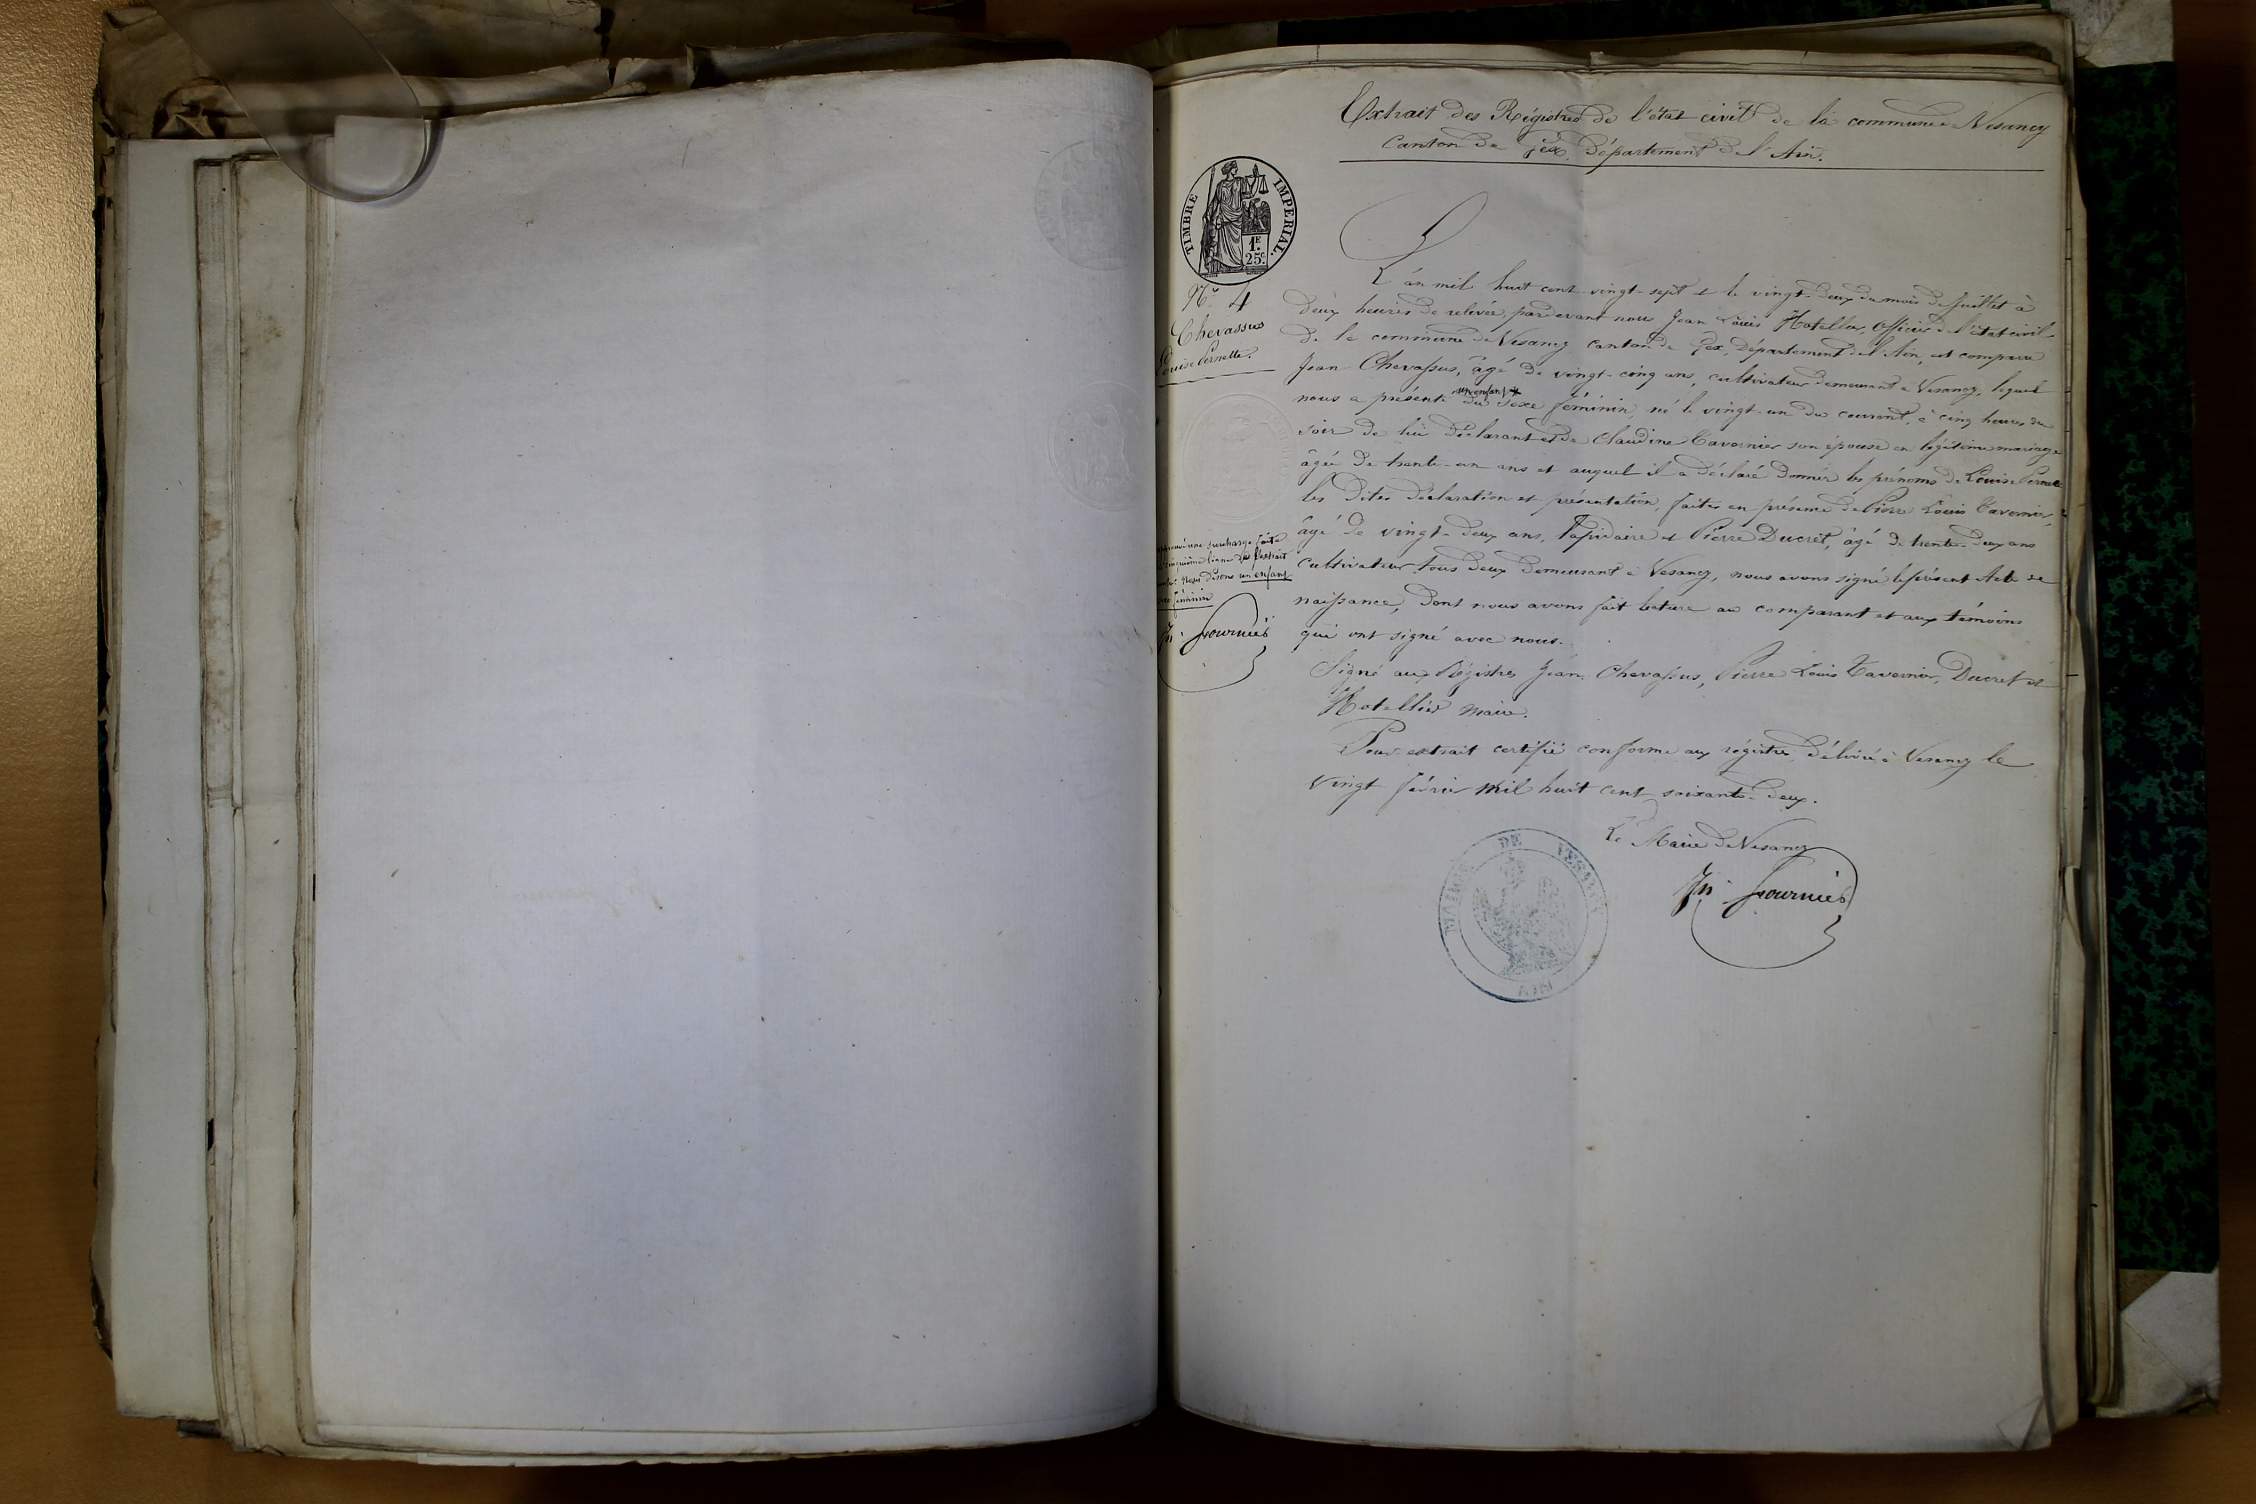 Extrait des Régistres de l'état civil de la commune de Vesancy
Canton de Gex, Département de l'Ain.
TIMBRE IMPERIAL.
1F. 25c.
N° 4
Chevassus
Louise Pernette.
L'an mil huit cent vingt-sept et le vingt-deux du mois de Juillet à
deux heures de relivée, pardevant nous Jean Louis Hotellier, Officier de l'état civil
de la commune de Vesancy canton de Gex, Département de l'Ain, est comparu
Jean Chevassus, âgé de vingt-cinq ans, cultivateur demeurant à Vesancy, lequel
nous a présenté un enfant * du sexe féminin, né le vingt-un du courant, à cinq heures du
soir de lui déclarant et de Claudine Tavernier son épouse en légitime mariage
âgée de trente-un ans et auquel il a déclaré donner les prénoms de Louise Pernette
les dites déclaration et présentation, faites en présence de Pierre Louis Tavernier,
âgé de vingt-deux ans, lapidaire et Pierre Ducret, âgé de trente-deux ans
cultivateur tous deux demeurant à Vesancy, nous avons signé le présent Acte de
naissance, dont nous avons fait lecture au comparant et aux témoins
qui ont signé avec nous.
Signé aux Régistres Jean Chevassus, Pierre Louis Tavernier, Ducret et
Hotellier maire.
Pour extrait certifié conforme aux régistres, Délivré à Vesancy le
vingt février mil huit cent soixante-deux.
Le Maire de Vesancy
Jn. Fournier
MAIRIE DE VESANCY
AIN
une surcharge faite
cinquième ligne de l'extrait
disons un enfant
féminin
Jn. Fournier